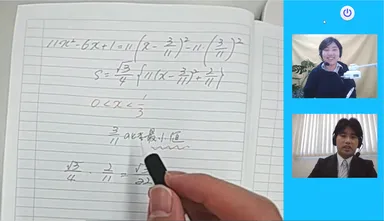 11x²-6x+1=11(x-3/11)²-11(3/11)²
S=√3/4{11(x-3/11)²+2/11}
0<x<1/3
3/11 のとき最小値
√3/4・2/11=√3/22